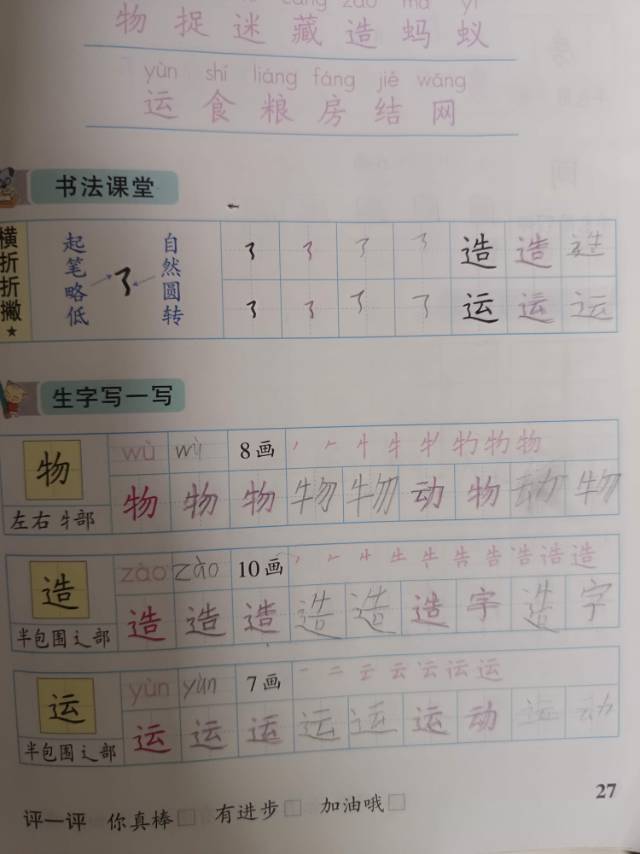 cáng zào mǎ yǐ
物 捉 迷 藏 造 蚂 蚁
yùn shí liáng fáng jiē wǎng
运 食 粮 房 结 网
书法课堂
横折折撇★
起笔略低
自然圆转
㇋ ㇋ ㇋ ㇋ 造 造 造
㇋ ㇋ ㇋ ㇋ 运 运 运
生字写一写
物 wù wù 8画
左右 牜部 物 物 物 物 物 动 物 动 物
造 zào zào 10画
半包围 辶部 造 造 造 造 造 造 字 造 字
运 yùn yùn 7画
半包围 辶部 运 运 运 运 运 运 动 运 动
27
评一评 你真棒□ 有进步□ 加油哦□